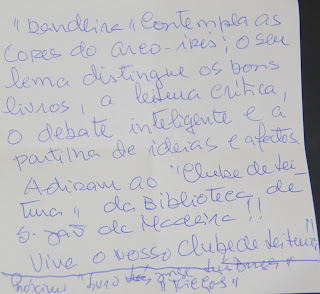 "bandeira" contempla as
cores do arco-íris; o seu
lema distingue os bons
livros, a leitura crítica,
o debate inteligente e a
partilha de ideias e afectos.
Adiram ao "Clube de Lei-
tura" da Biblioteca de
S. João da Madeira!!
Viva o nosso Clube de Leitura!!
próximo livro